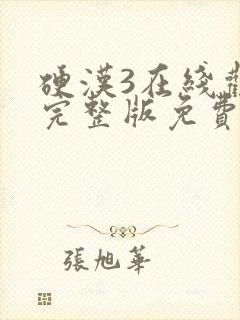 硬漢3在綫觀
完整版免費
張旭華